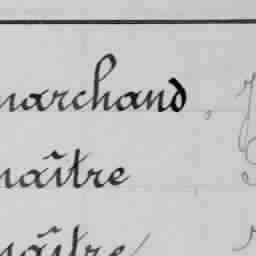 marchand
maître
maître